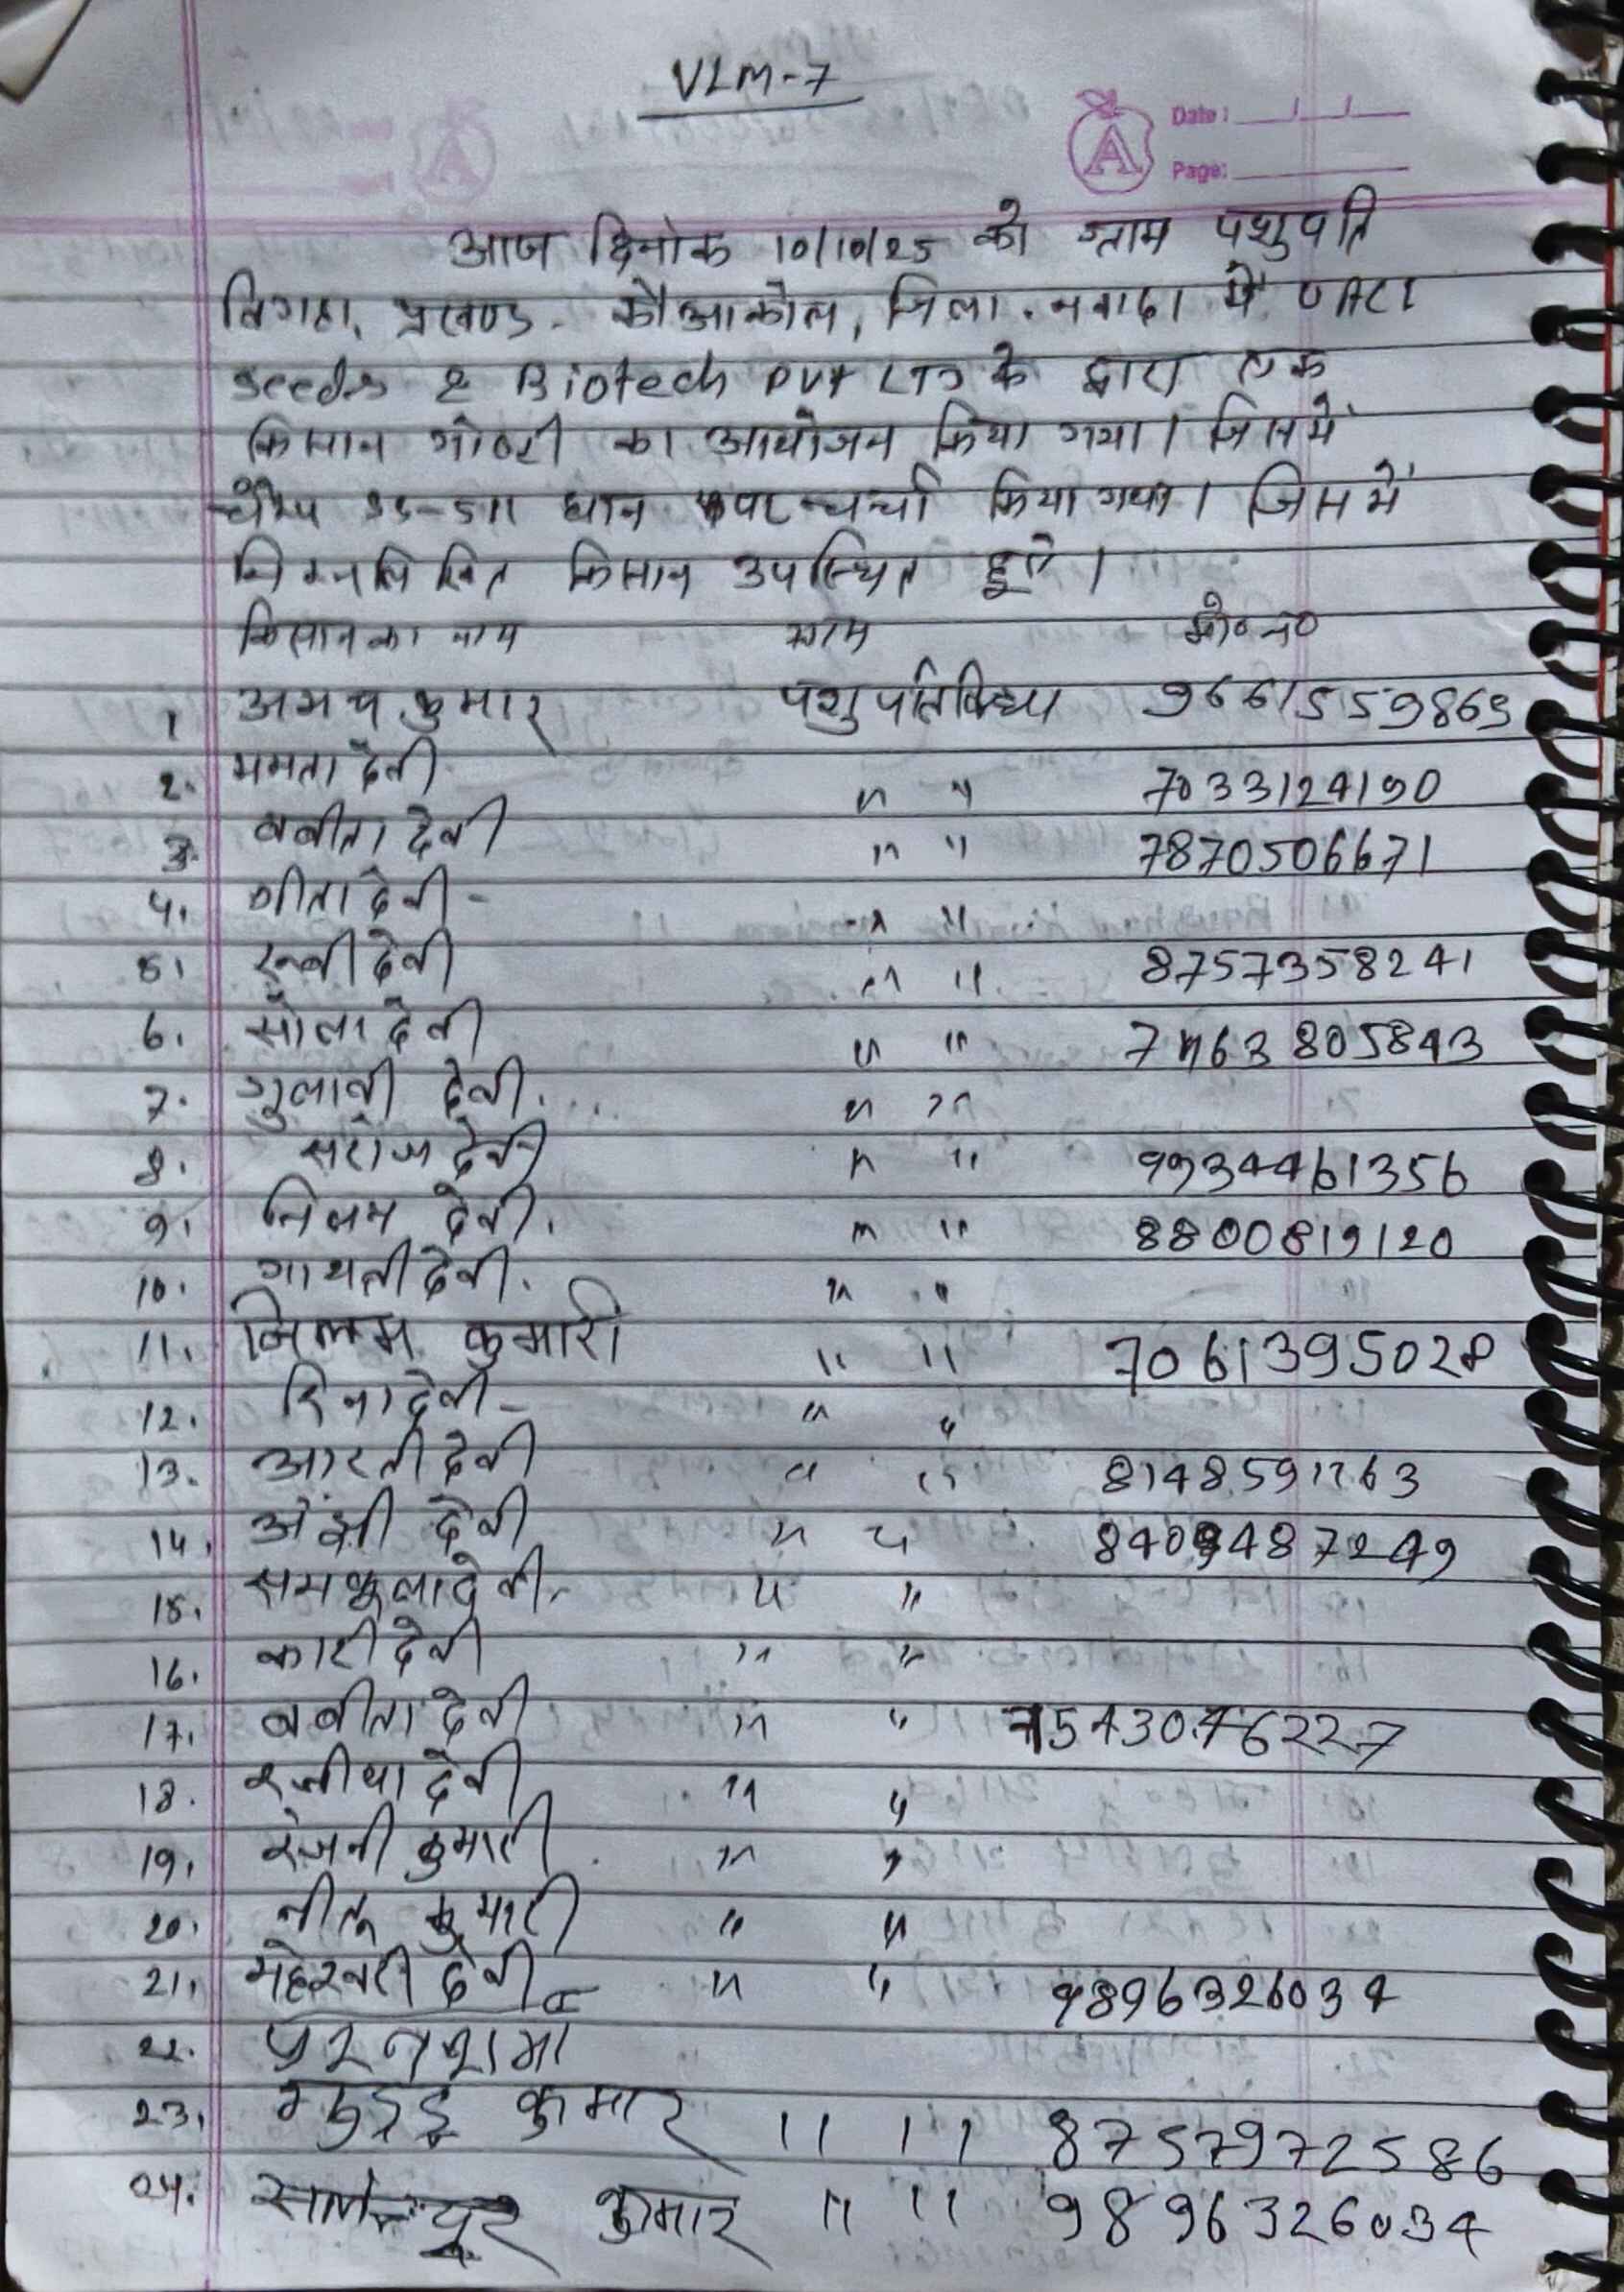 VLM-7
Date :
Page:
आज दिनांक 10/10/25 को ग्राम पशुपति
विगहा, प्रखण्ड- कौआकोल, जिला. नवादा में
Seeds & Biotech PVt LTD के द्वारा एक
किसान गोष्ठी का आयोजन किया गया। जिसमें
धान पर चर्चा किया गया। जिसमें
निम्नलिखित किसान उपस्थित हुऐ।
किसान का नाम ग्राम मो० न०
1 अभय कुमार पशुपतिविघा 96615559869
2. ममता देवी " " 7033124190
3 बबीता देवी " " 7870506671
4. गीता देवी - " "
5. रुबी देवी " " 8757358241
6. देवी " " 7463805843
7. गुलाबी देवी. " "
8. सरोज देवी " " 9934461356
9. निलम देवी. " " 8800819120
10. गायत्री देवी. " "
11. निलम कुमारी " " 7061395028
12. रिना देवी - " "
13. आरती देवी " " 8148591763
14. देवी " " 8409487249
15. देवी. " "
16. कारी देवी " "
17. बबीता देवी " " 7543046227
18. देवी " "
19. रंजनी कुमारी " "
20. नीतू कुमारी " "
21. महेश्वरी देवी " " 9896326034
22.
23. गुड्डू कुमार " " 8757972586
24. कुमार " " 9896326034